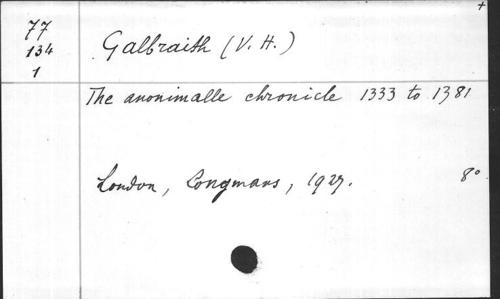 77
134
1
Galbraith (V. H.)
The anonimalle chronicle 1333 to 1381
London, Longmans, 1927.
8°